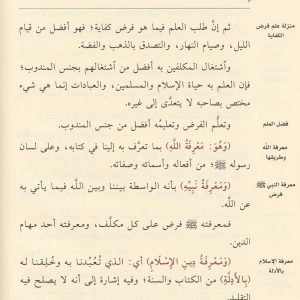 منزلة علم فرض
الكفاية
ثم إنَّ طلب العلم فيما هو فرض كفاية؛ فهو أفضل من قيام
الليل، وصيام النهار، والتصدق بالذهب والفضة.
وأشتغال المكلفين به أفضل من أشتغالهم بجنس المندوب؛
لأنه من جنس ما فيه حياة الإسلام والمسلمين، والعبادات إنما هي شيء
مختص بصاحبه لا يتعدَّى إلى غيره.
فضل العلم
وتعلُّم الفرض وتعليمُه أفضل من جنس المندوب.
معرفة الله
وطريقها
(وَهُوَ: مَعْرِفَةُ اللَّهِ) بما تعرَّف به إلينا في كتابه، وعلى لسان
رسوله ﷺ؛ من أفعاله وأسمائه وصفاته.
معرفة النبي ﷺ
فرض
(وَمَعْرِفَةُ نَبِيِّهِ) بأنه الواسطة بيننا وبين اللَّه فيما يأتي به
عن اللَّه.
فمعرفته ﷺ فرض على كل مكلَّف، ومعرفته أحد مهام
الدين.
معرفة الإسلام
بالأدلة
(وَمَعْرِفَةُ دِينِ الإِسْلَامِ) أي: الذي تُعُبِّدنا به وخُلِقنا له
(بِالأَدِلَّةِ) من الكتاب والسنة؛ وفيه إشارة إلى أنه لا يصلح فيه
التقليد.